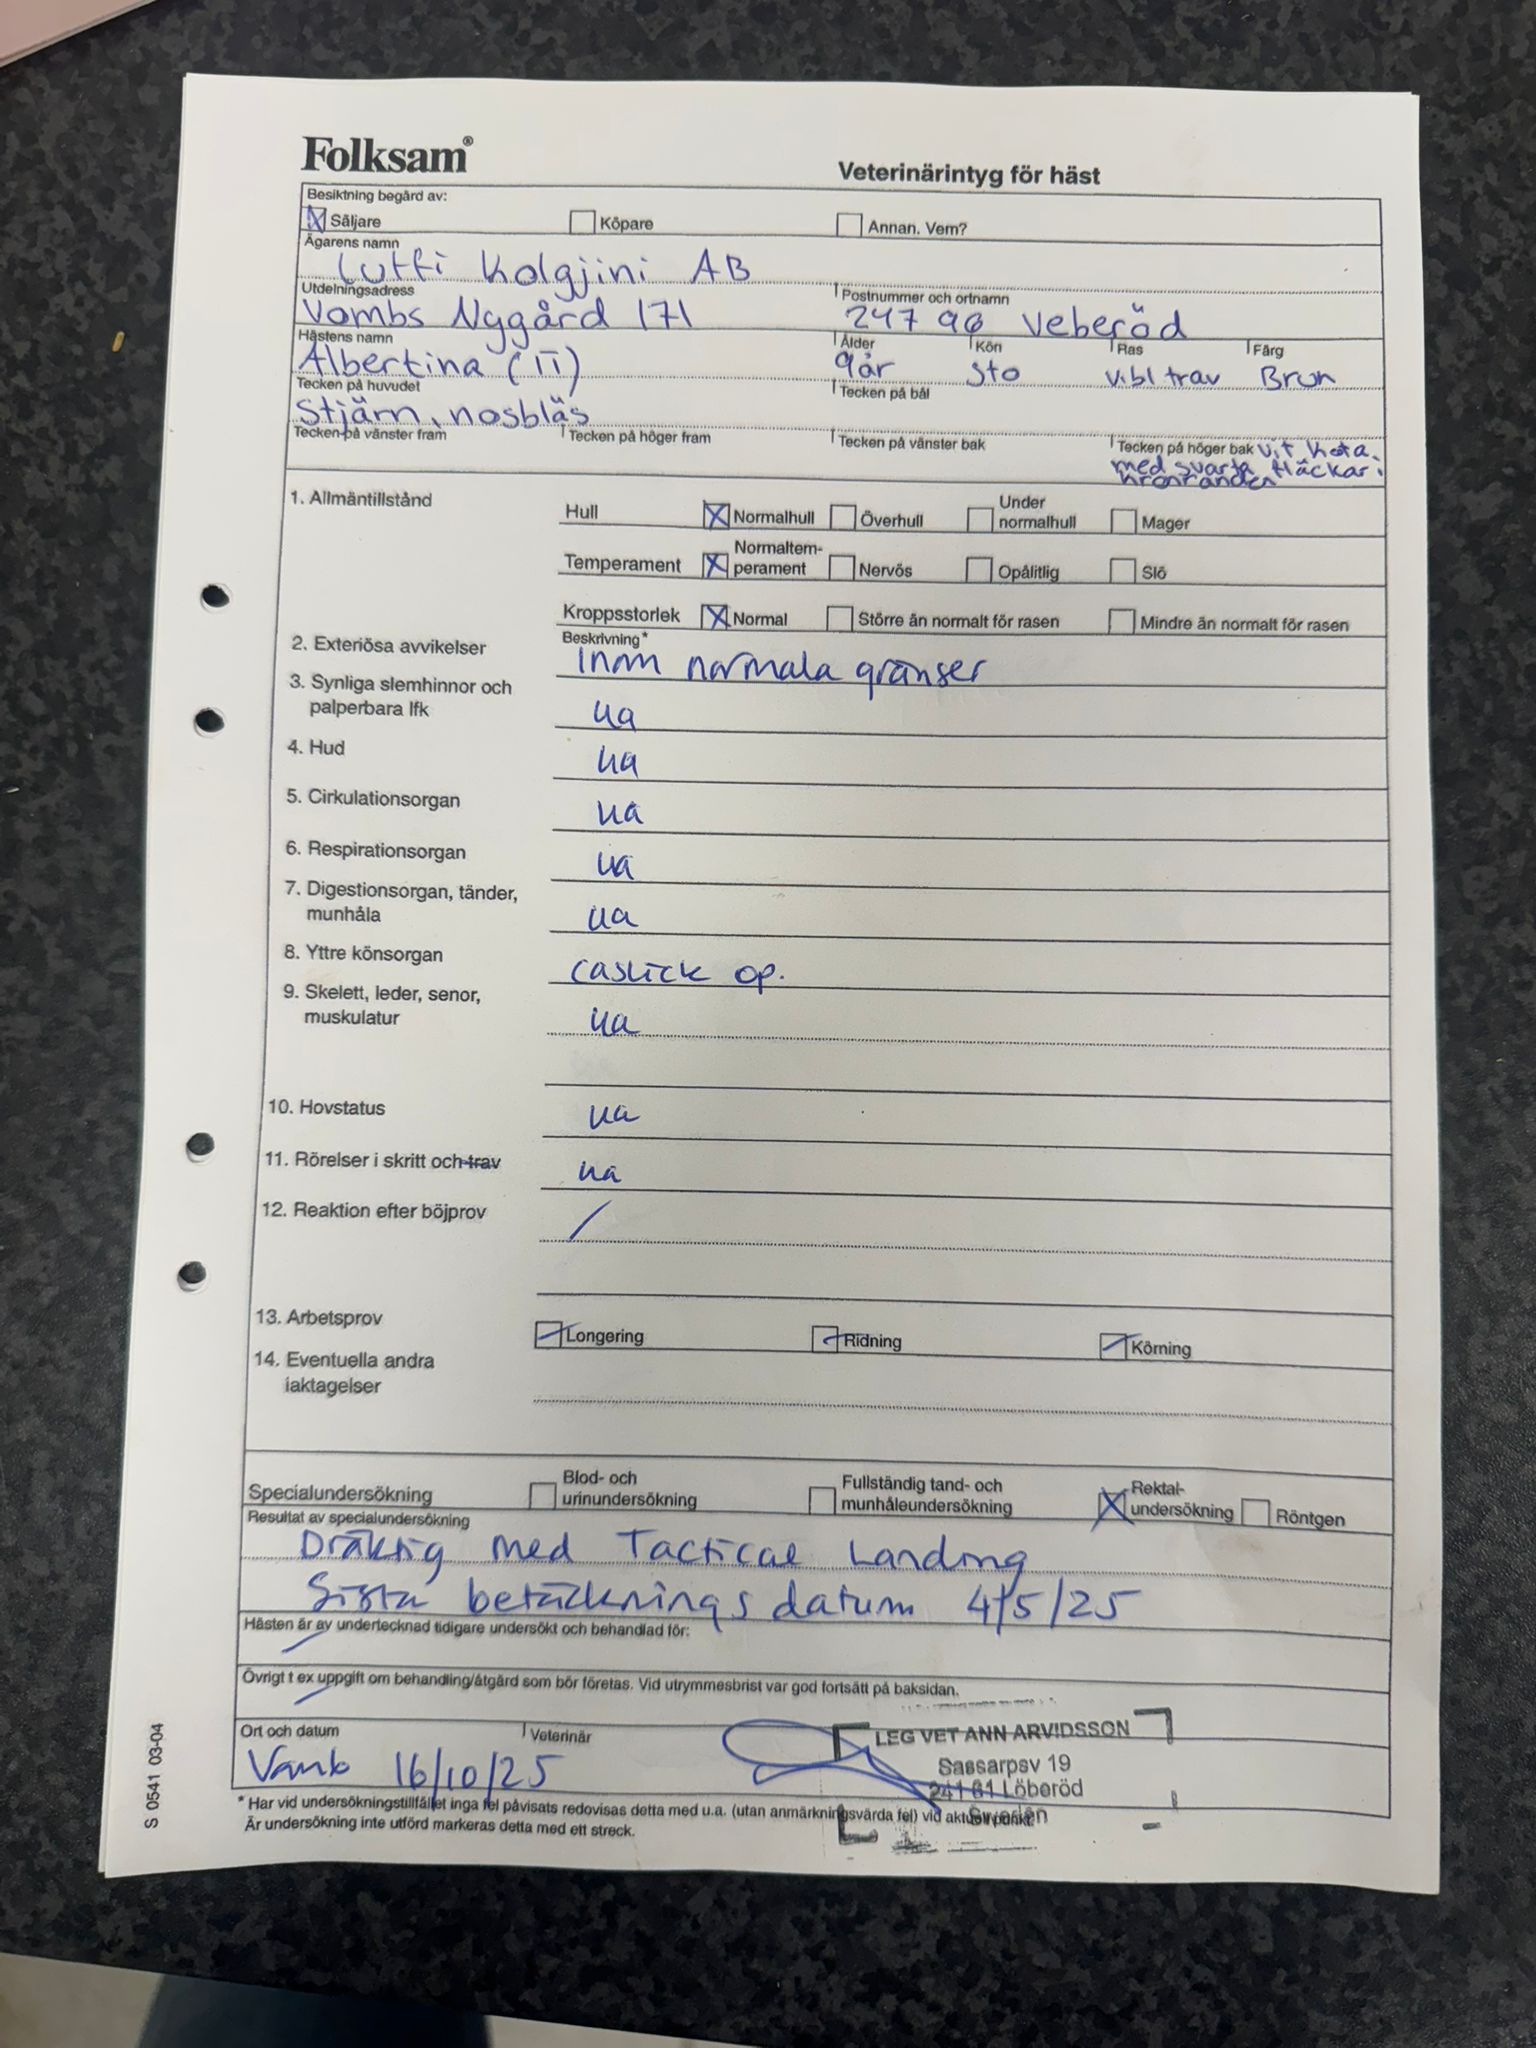 Folksam®
Veterinärintyg för häst
Besiktning begärd av:
Säljare Köpare Annan. Vem?
Ägarens namn
Lutfi Kolgjini AB
Utdelningsadress Postnummer och ortnamn
Vombs Nygård 171 247 96 Veberöd
Hästens namn Ålder Kön Ras Färg
Albertina (IT) 9år Sto v.bl trav Brun
Tecken på huvudet Tecken på bål
Stjärn, nosbläs
Tecken på vänster fram Tecken på höger fram Tecken på vänster bak Tecken på höger bak vit kota
med svarta fläckar i
kronranden
1. Allmäntillstånd
Hull Normalhull Överhull Under normalhull Mager
Temperament Normaltem-perament Nervös Opålitlig Slö
Kroppsstorlek Normal Större än normalt för rasen Mindre än normalt för rasen
2. Exteriösa avvikelser Beskrivning* Inom normala gränser
3. Synliga slemhinnor och
palperbara lfk ua
4. Hud ua
5. Cirkulationsorgan ua
6. Respirationsorgan ua
7. Digestionsorgan, tänder,
munhåla ua
8. Yttre könsorgan caslick op.
9. Skelett, leder, senor,
muskulatur ua
10. Hovstatus ua
11. Rörelser i skritt och trav ua
12. Reaktion efter böjprov /
13. Arbetsprov Longering Ridning Körning
14. Eventuella andra
iaktagelser
Specialundersökning Blod- och urinundersökning Fullständig tand- och munhåleundersökning Rektal-undersökning Röntgen
Resultat av specialundersökning
Dräktig med Tactical Landing
Sista betäckningsdatum 4/5/25
Hästen är av undertecknad tidigare undersökt och behandlad för:
Övrigt t ex uppgift om behandling/åtgärd som bör företas. Vid utrymmesbrist var god fortsätt på baksidan.
Ort och datum Veterinär
Vomb 16/10/25
LEG VET ANN ARVIDSSON
Sassarpsv 19
241 61 Löberöd
Sweden
* Har vid undersökningstillfället inga fel påvisats redovisas detta med u.a. (utan anmärkningsvärda fel) vid aktuell punkt.
Är undersökning inte utförd markeras detta med ett streck.
S 0541 03-04